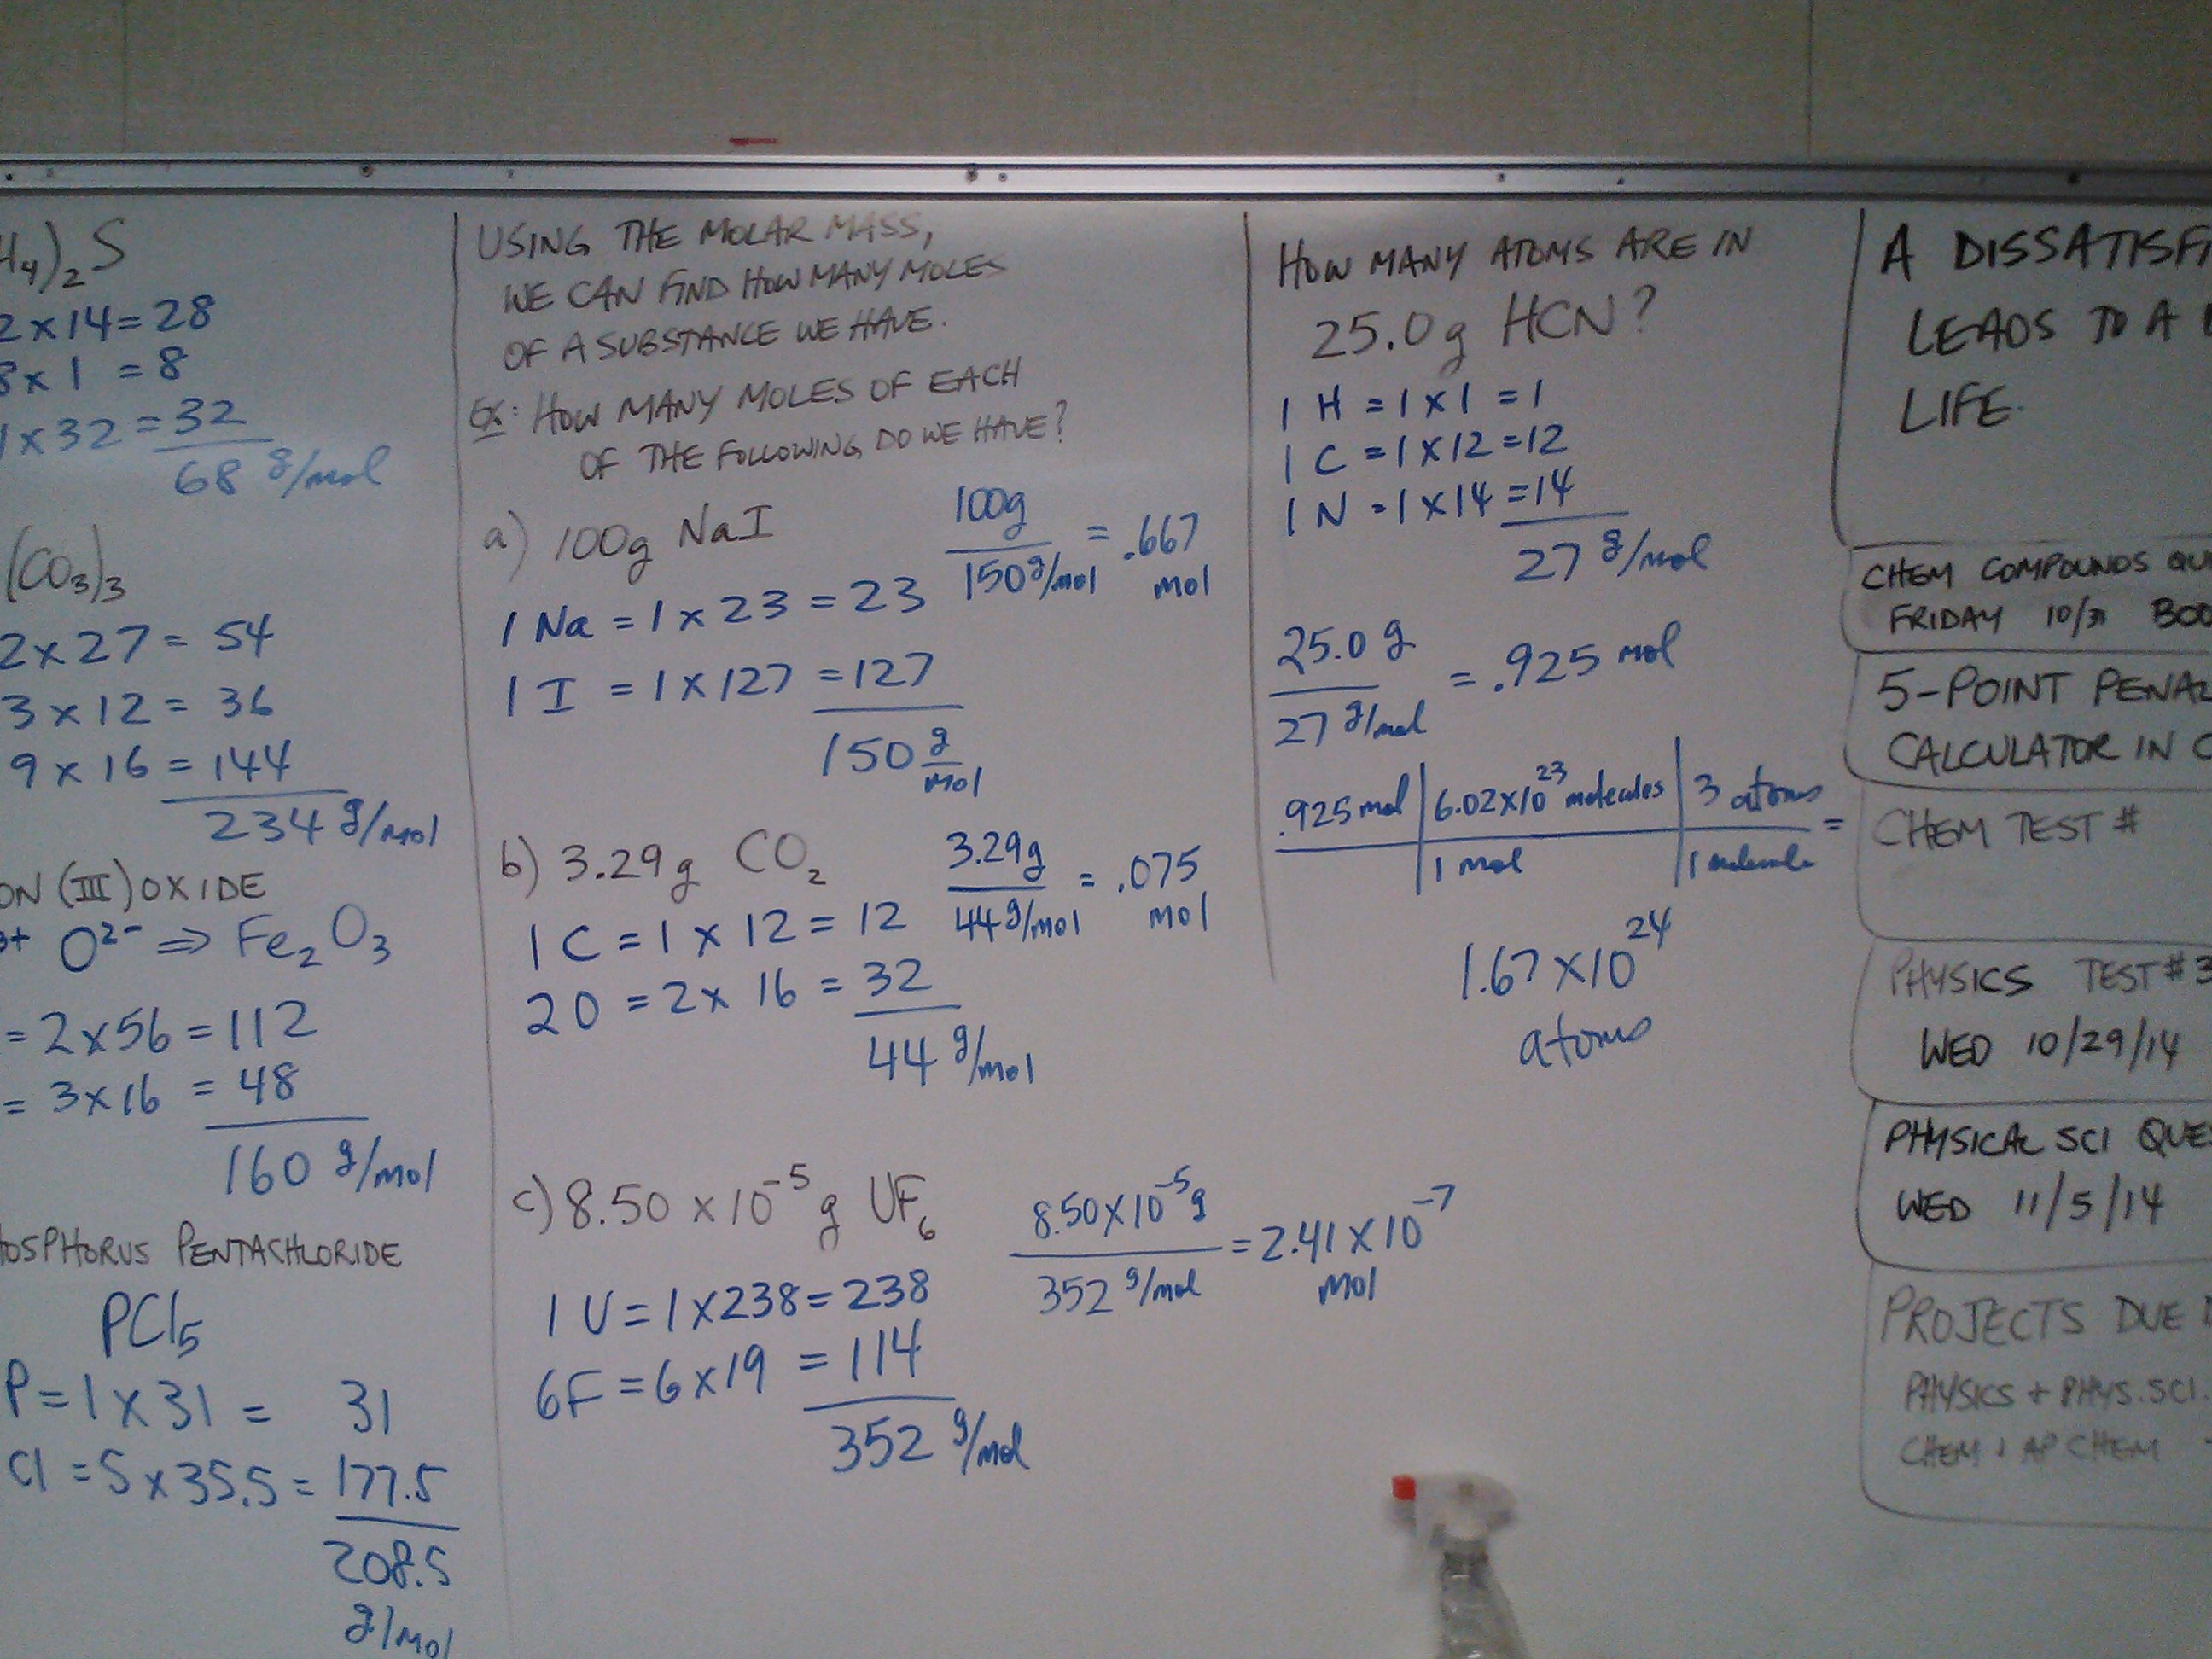 H₄)₂S
2 x 14 = 28
8 x 1 = 8
1 x 32 = 32
68 g/mol
(CO₃)₃
2 x 27 = 54
3 x 12 = 36
9 x 16 = 144
234 g/mol
ON (III) OXIDE
3+ O²⁻ ⇒ Fe₂O₃
= 2x56 = 112
= 3x16 = 48
160 g/mol
HOSPHORUS PENTACHLORIDE
PCl₅
P = 1 x 31 = 31
Cl = 5 x 35.5 = 177.5
208.5
g/mol
USING THE MOLAR MASS,
WE CAN FIND HOW MANY MOLES
OF A SUBSTANCE WE HAVE.
EX: HOW MANY MOLES OF EACH
OF THE FOLLOWING DO WE HAVE?
a) 100g NaI
1 Na = 1 x 23 = 23
1 I = 1 x 127 = 127
150 g/mol
100g / 150 g/mol = .667 mol
b) 3.29g CO₂
1 C = 1 x 12 = 12
2O = 2x 16 = 32
44 g/mol
3.29g / 44 g/mol = .075 mol
c) 8.50 x 10⁻⁵ g UF₆
1 U = 1 x 238 = 238
6F = 6 x 19 = 114
352 g/mol
8.50x10⁻⁵g / 352 g/mol = 2.41 x 10⁻⁷ mol
HOW MANY ATOMS ARE IN
25.0g HCN?
1 H = 1 x 1 = 1
1 C = 1 x 12 = 12
1 N = 1 x 14 = 14
27 g/mol
25.0 g / 27 g/mol = .925 mol
.925 mol | 6.02x10²³ molecules | 3 atoms =
1 mol | 1 molecule
1.67 x 10²⁴
atoms
A DISSATISF
LEADS TO A
LIFE.
CHEM COMPOUNDS QUI
FRIDAY 10/31 BOO
5-POINT PENAL
CALCULATOR IN C
CHEM TEST #
PHYSICS TEST #3
WED 10/29/14
PHYSICAL SCI QUES
WED 11/5/14
PROJECTS DUE
PHYSICS + PHYS. SCI.
CHEM + AP CHEM -